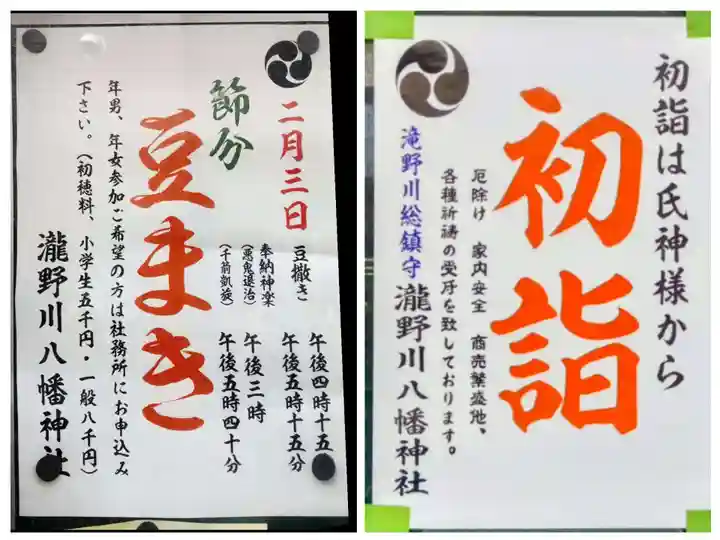 二月三日
節分
豆まき
豆撒き
午後四時十五
午後五時十五分
奉納神楽
(悪鬼退治)
午後三時
(千箭凱旋)
午後五時四十分
年男、年女参加ご希望の方は社務所にお申込み
下さい。(初穂料、小学生五千円・一般八千円)
瀧野川八幡神社
初詣は氏神様から
初詣
厄除け 家内安全 商売繁盛他、
各種祈祷の受付を致しております。
滝野川総鎮守
瀧野川八幡神社